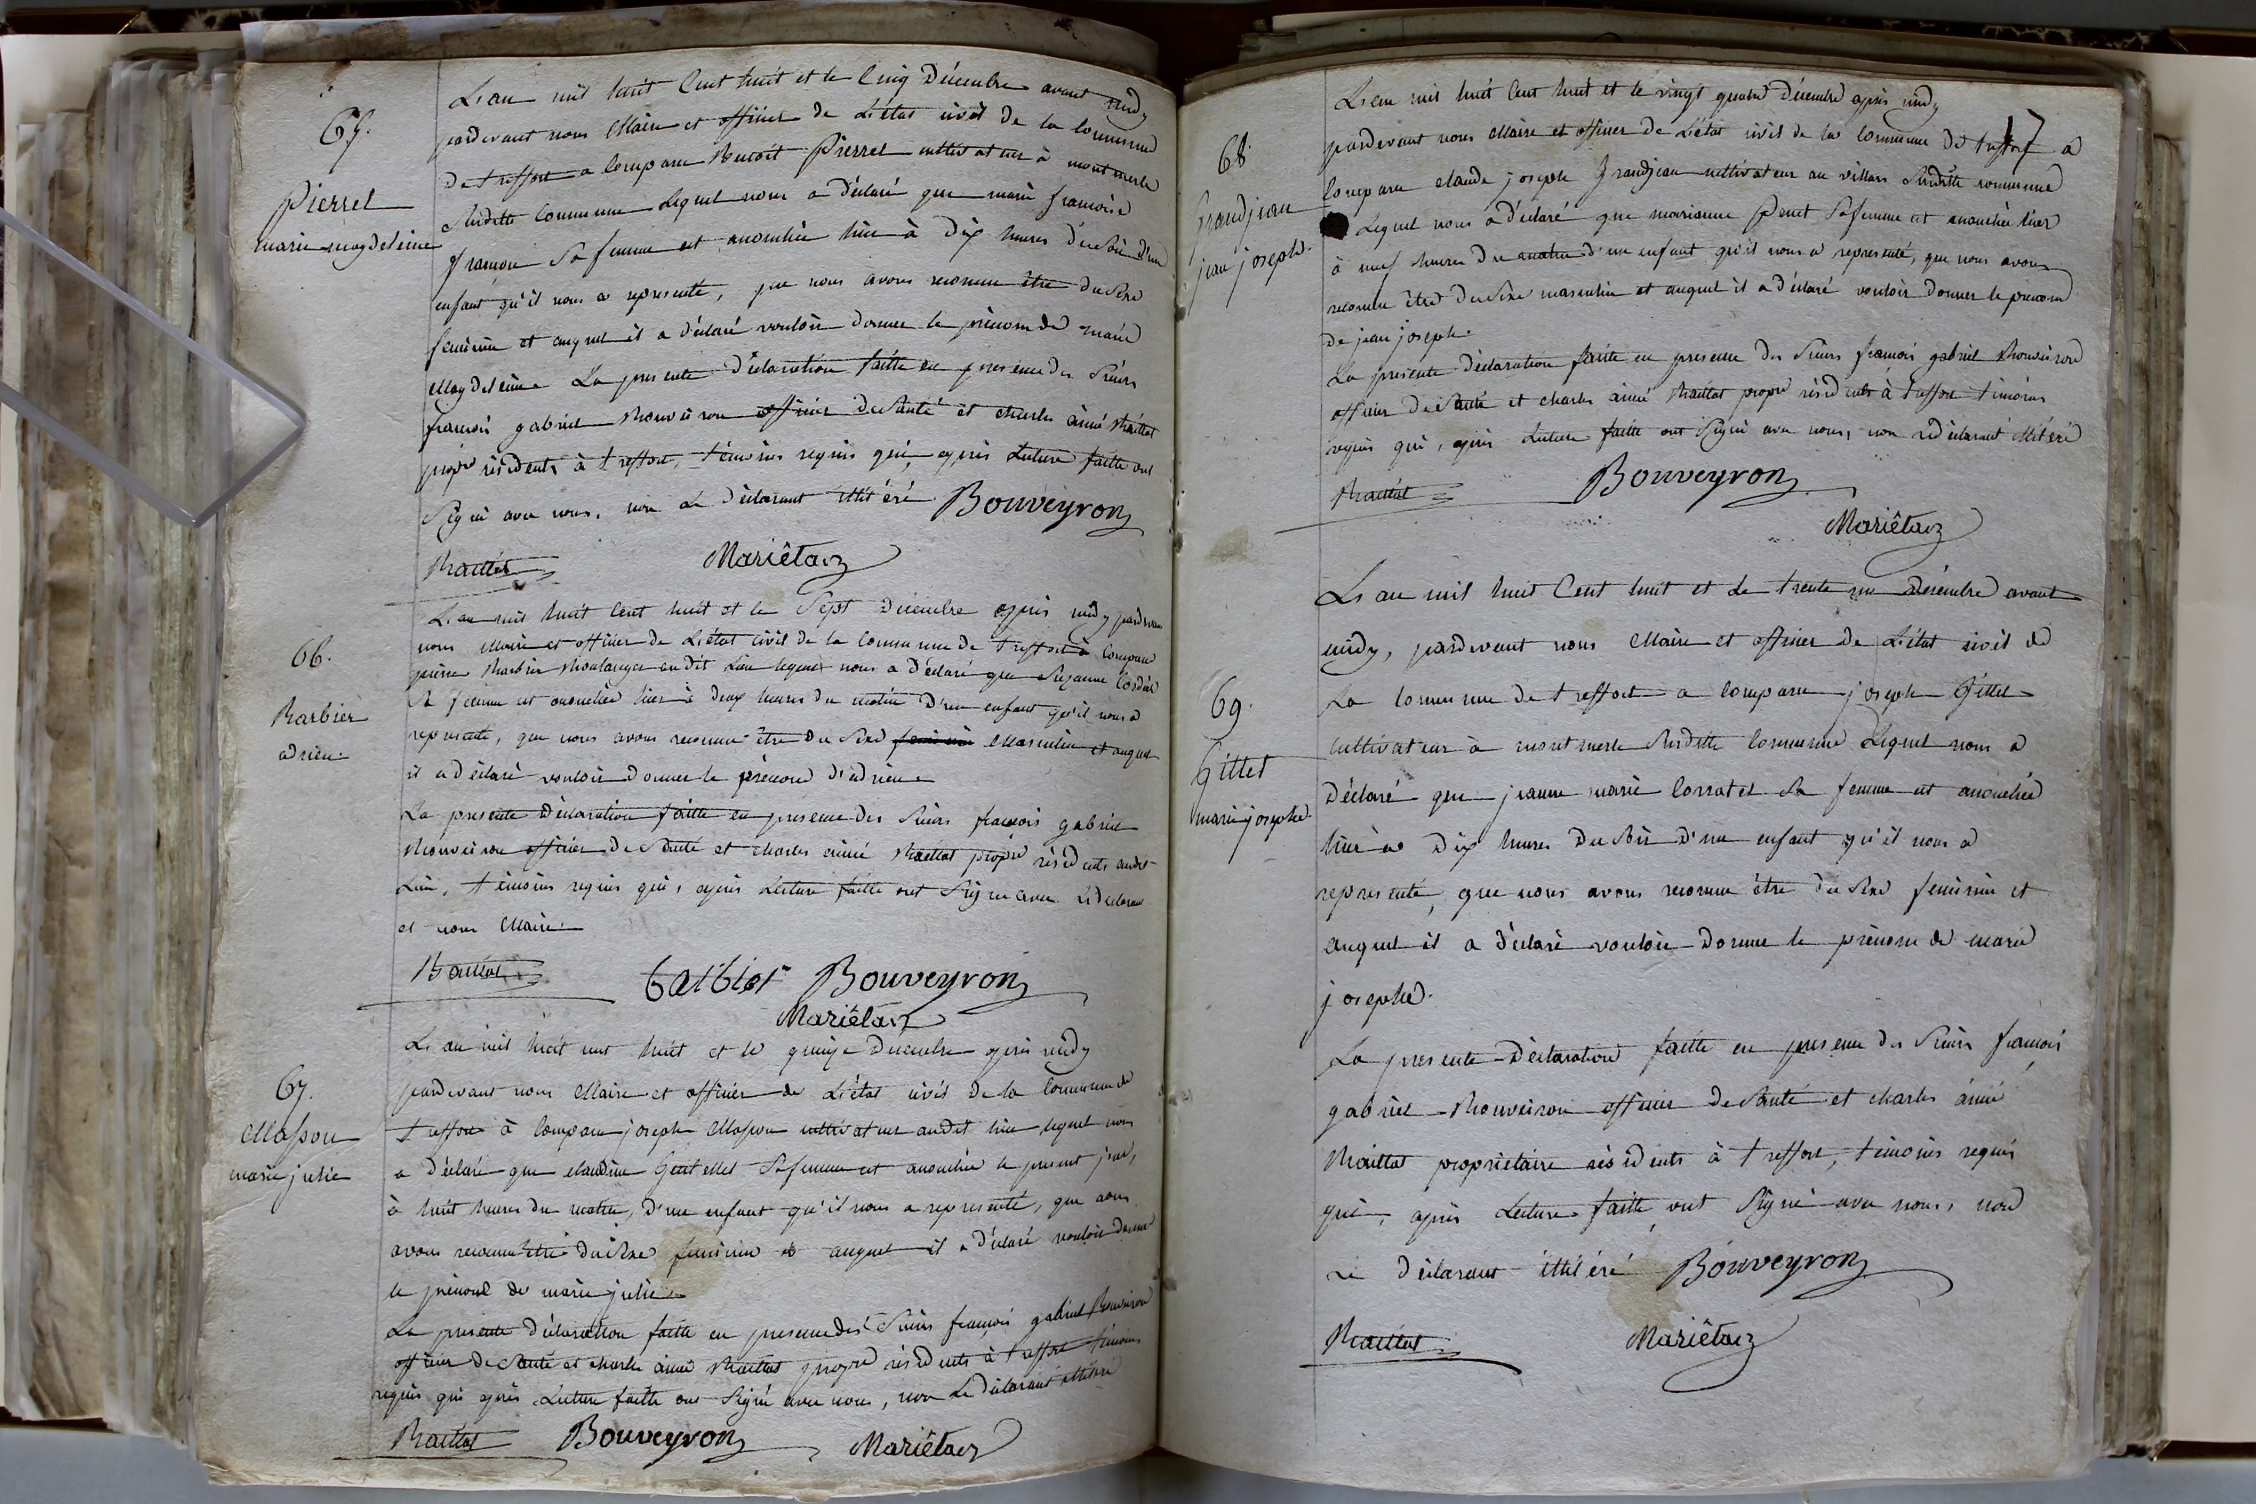 65.
Pierrel
marie magdeleine
L'an mil huit Cent huit et le Cinq Décembre avant midy
pardevant nous Maire et officier de L'état civil de la Commune
de treffort a Comparu Benoit Pierrel cultivateur à montmerle
Susditte Commune Lequel nous a déclaré que marie françoise
françon Sa femme est accouchée hier à Dix heures du Soir d'un
enfant qu'il nous a representé, que nous avons reconnu être du Sexe
feminin et auquel il a déclaré vouloir donner le prénom de marie
Magdeleine La presente déclaration faitte en presence des Sieurs
françois gabriel Bouveiron officier de Santé et charles aimé Maillat
propre résidents à treffort, témoins requis qui, après Lecture faitte ont
Signé avec nous, non Le déclarant illitéré. Bouveyron
Mariêtaz
66.
Barbier
adrien
L'an mil huit Cent huit et le Sept Décembre après midy pardevant
nous Maire et officier de L'état civil de la Commune de treffort à Comparu
pierre Barbier Boulanger audit Lieu lequel nous a déclaré que Suzanne Cordier
Sa femme est accouchée hier à deux heures du matin D'un enfant qu'il nous a
representé, que nous avons reconnu être du Sexe feminin Masculin et auquel
il a déclaré vouloir donner le prénom d'adrien
La presente Déclaration faitte en presence des Sieurs françois gabriel
Bouveiron officier de Santé et charles aimé Maillat propre résidents audit
Lieu, témoins requis qui, après Lecture faitte ont Signé avec Le déclarant
et nous Maire.
Barbier Bouveyron
Mariêtaz
67.
Masson
marie julie
L'an mil huit cent huit et le quinze Decembre après midy
pardevant nous Maire et officier de L'état civil de la Commune de
treffort à Comparu joseph Masson cultivateur audit lieu lequel nous
a déclaré que claudine Sa femme est accouchée le present jour,
à huit heures du matin, d'un enfant qu'il nous a representé, que nous
avons reconnu être du Sexe feminin et auquel il a déclaré vouloir donner
le prénom de marie julie
La presente déclaration faitte en presence des Sieurs françois gabriel Bouveiron
officier de Santé et charles aimé Maillat propre résidents à treffort témoins
requis qui après Lecture faitte ont Signé avec nous, non Le déclarant illitéré
Bouveyron Mariêtaz
17
68.
Grandjean
jean joseph.
L'an mil huit Cent huit et le vingt quatre Décembre après midy
pardevant nous Maire et officier de L'état civil de la Commune de treffort a
Comparu claude joseph Grandjean cultivateur au villars Susditte commune
Lequel nous a déclaré que marianne Sa femme est accouchée hier
à neuf heures du matin d'un enfant qu'il nous a representé, que nous avons
reconnu être du Sexe masculin et auquel il a déclaré vouloir donner le prenom
de jean joseph.
La presente déclaration faitte en presence des Sieurs françois gabriel Bouveiron
officier de Santé et charles aimé Maillat propre résidents à treffort témoins
requis qui, après Lecture faitte ont Signé avec nous, non Le déclarant illitéré
Bouveyron
Mariêtaz
69.
Gillet
marie josephe
L'an mil huit Cent huit et le trente un décembre avant
midy, pardevant nous Maire et officier de L'état civil de
La Commune de treffort a Comparu joseph Gillet
Cultivateur à montmerle Susditte Commune Lequel nous a
Déclaré que jeanne marie Corratet Sa femme est accouchée
hier à Dix heures du Soir D'un enfant qu'il nous a
representé, que nous avons reconnu être du Sexe feminin et
auquel il a déclaré vouloir donner le prénom de marie
josephe.
La presente déclaration faitte en presence des Sieurs françois
gabriel Bouveiron officier de Santé et charles aimé
Maillat propriétaire résidents à treffort, témoins requis
qui, après Lecture faitte, ont Signé avec nous, non
Le déclarant illitéré Bouveyron
Mariêtaz